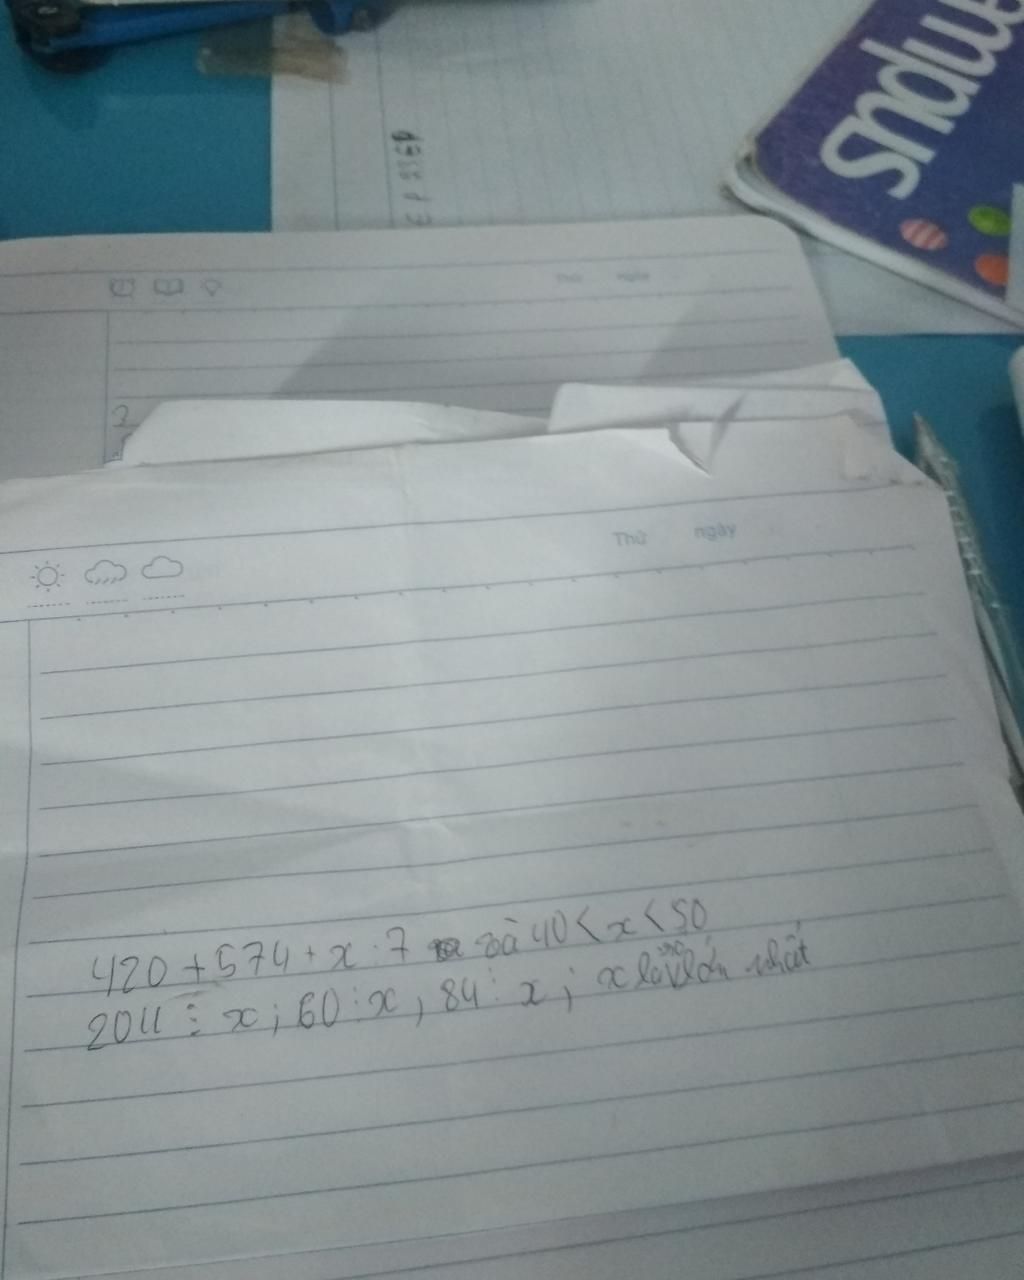 Campus
Thứ ngày
Thứ ngày
2
420 + 574 + x : 7 và 40 < x < 50
2011 ⋮ x ; 60 ⋮ x , 84 ⋮ x ; x là số lớn nhất